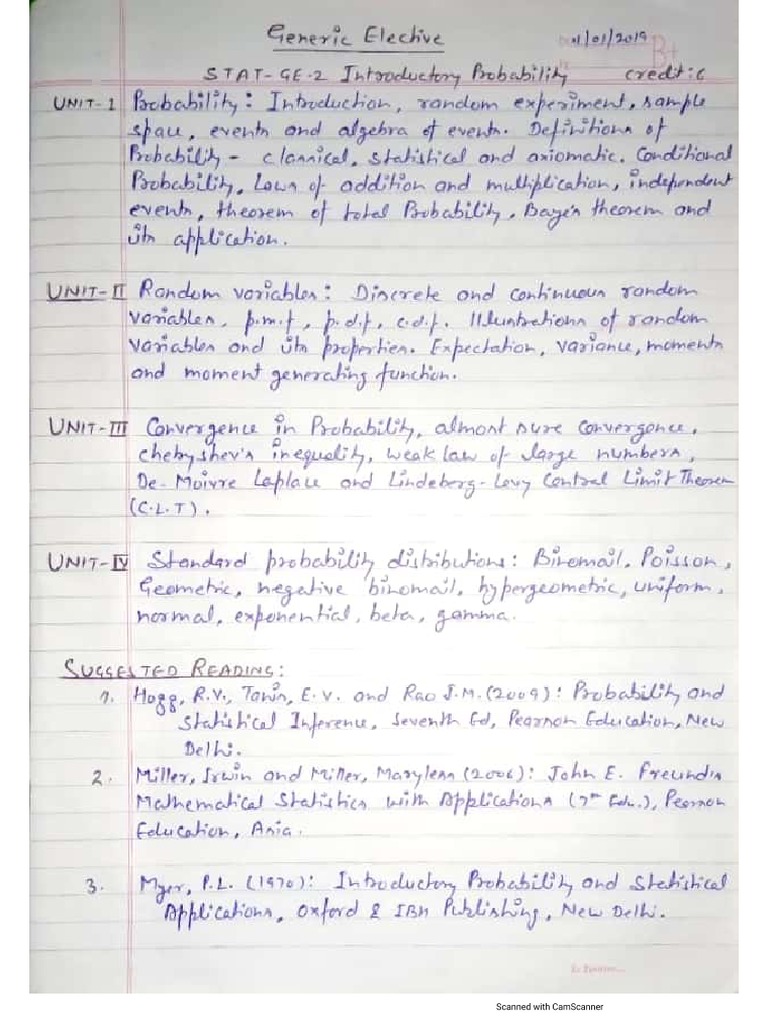 Generic Elective
1/01/2019
B+
STAT-GE-2 Introductory Probability credit:6
UNIT-1 Probability: Introduction, random experiment, sample
space, events and algebra of events. Definitions of
Probability - classical, statistical and axiomatic. Conditional
Probability, laws of addition and multiplication, independent
events, theorem of total Probability, Baye's theorem and
its application.
UNIT-II Random variables: Discrete and continuous random
variables, p.m.f, p.d.f, c.d.f. Illustrations of random
variables and its properties. Expectation, variance, moments
and moment generating function.
UNIT-III Convergence in Probability, almost sure convergence,
chebyshev's inequality, weak law of large numbers,
De-Moivre Laplace and Lindeberg-Levy Central Limit Theorem
(C.L.T).
UNIT-IV Standard probability distributions: Binomail, Poisson,
Geometric, negative binomail, hypergeometric, uniform,
normal, exponential, beta, gamma.
SUGGESTED READING:
1. Hogg, R.V., Tanis, E.V. and Rao J.M. (2009): Probability and
Statistical Inference, Seventh Ed, Pearson Education, New
Delhi.
2. Miller, Irwin and Miller, Marylees (2006): John E. Freundis
Mathematical Statistics with Applications (7th Edn.), Pearson
Education, Asia.
3. Myer, P.L. (1970): Introductory Probability and Statistical
Applications, Oxford & IBH Publishing, New Delhi.
Scanned with CamScanner